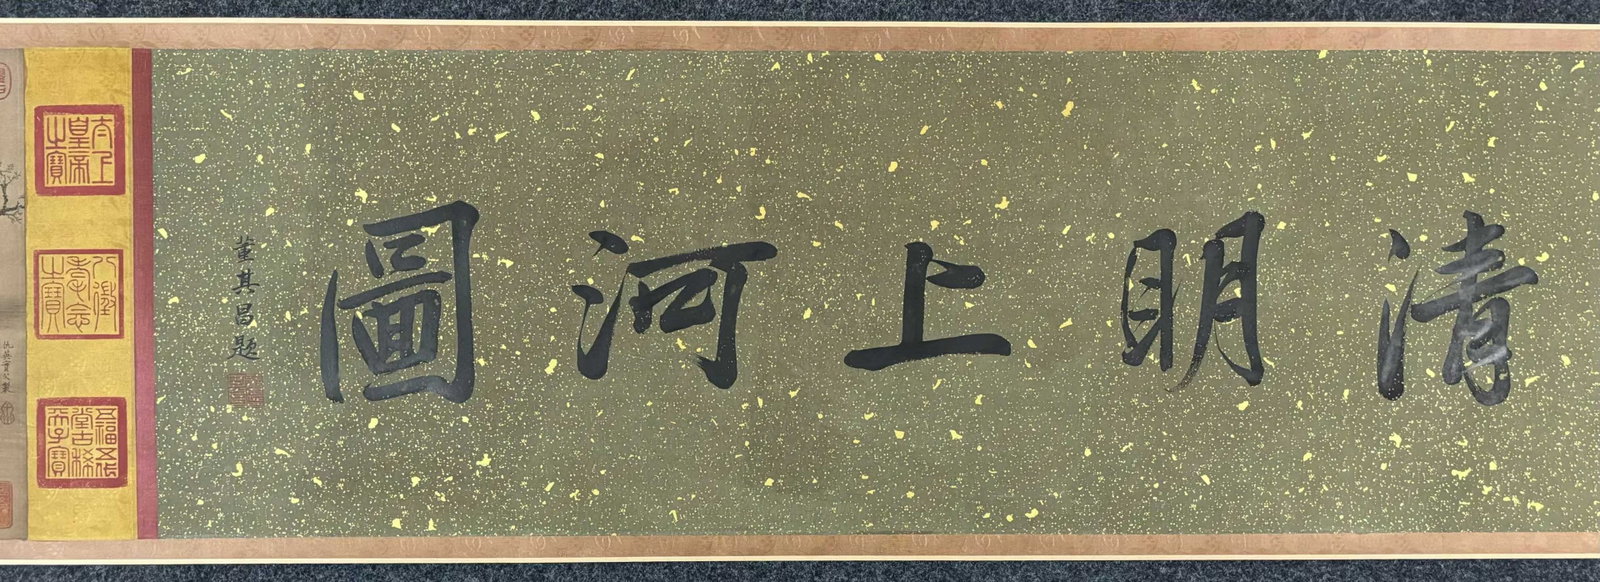 清明上河圖
董其昌題
太上皇帝之寶
八徵耄念之寶
五福五代堂古稀天子寶
仇英實父製